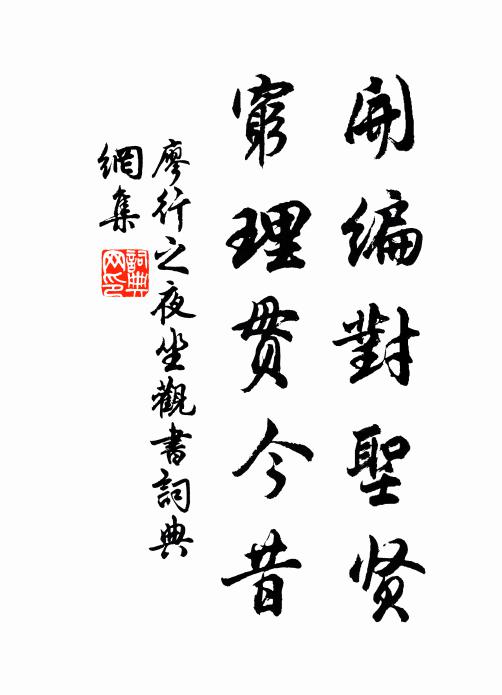 開編對聖贤
窮理貫今昔
廖行之夜坐觀書詞典
網集
詞典网印